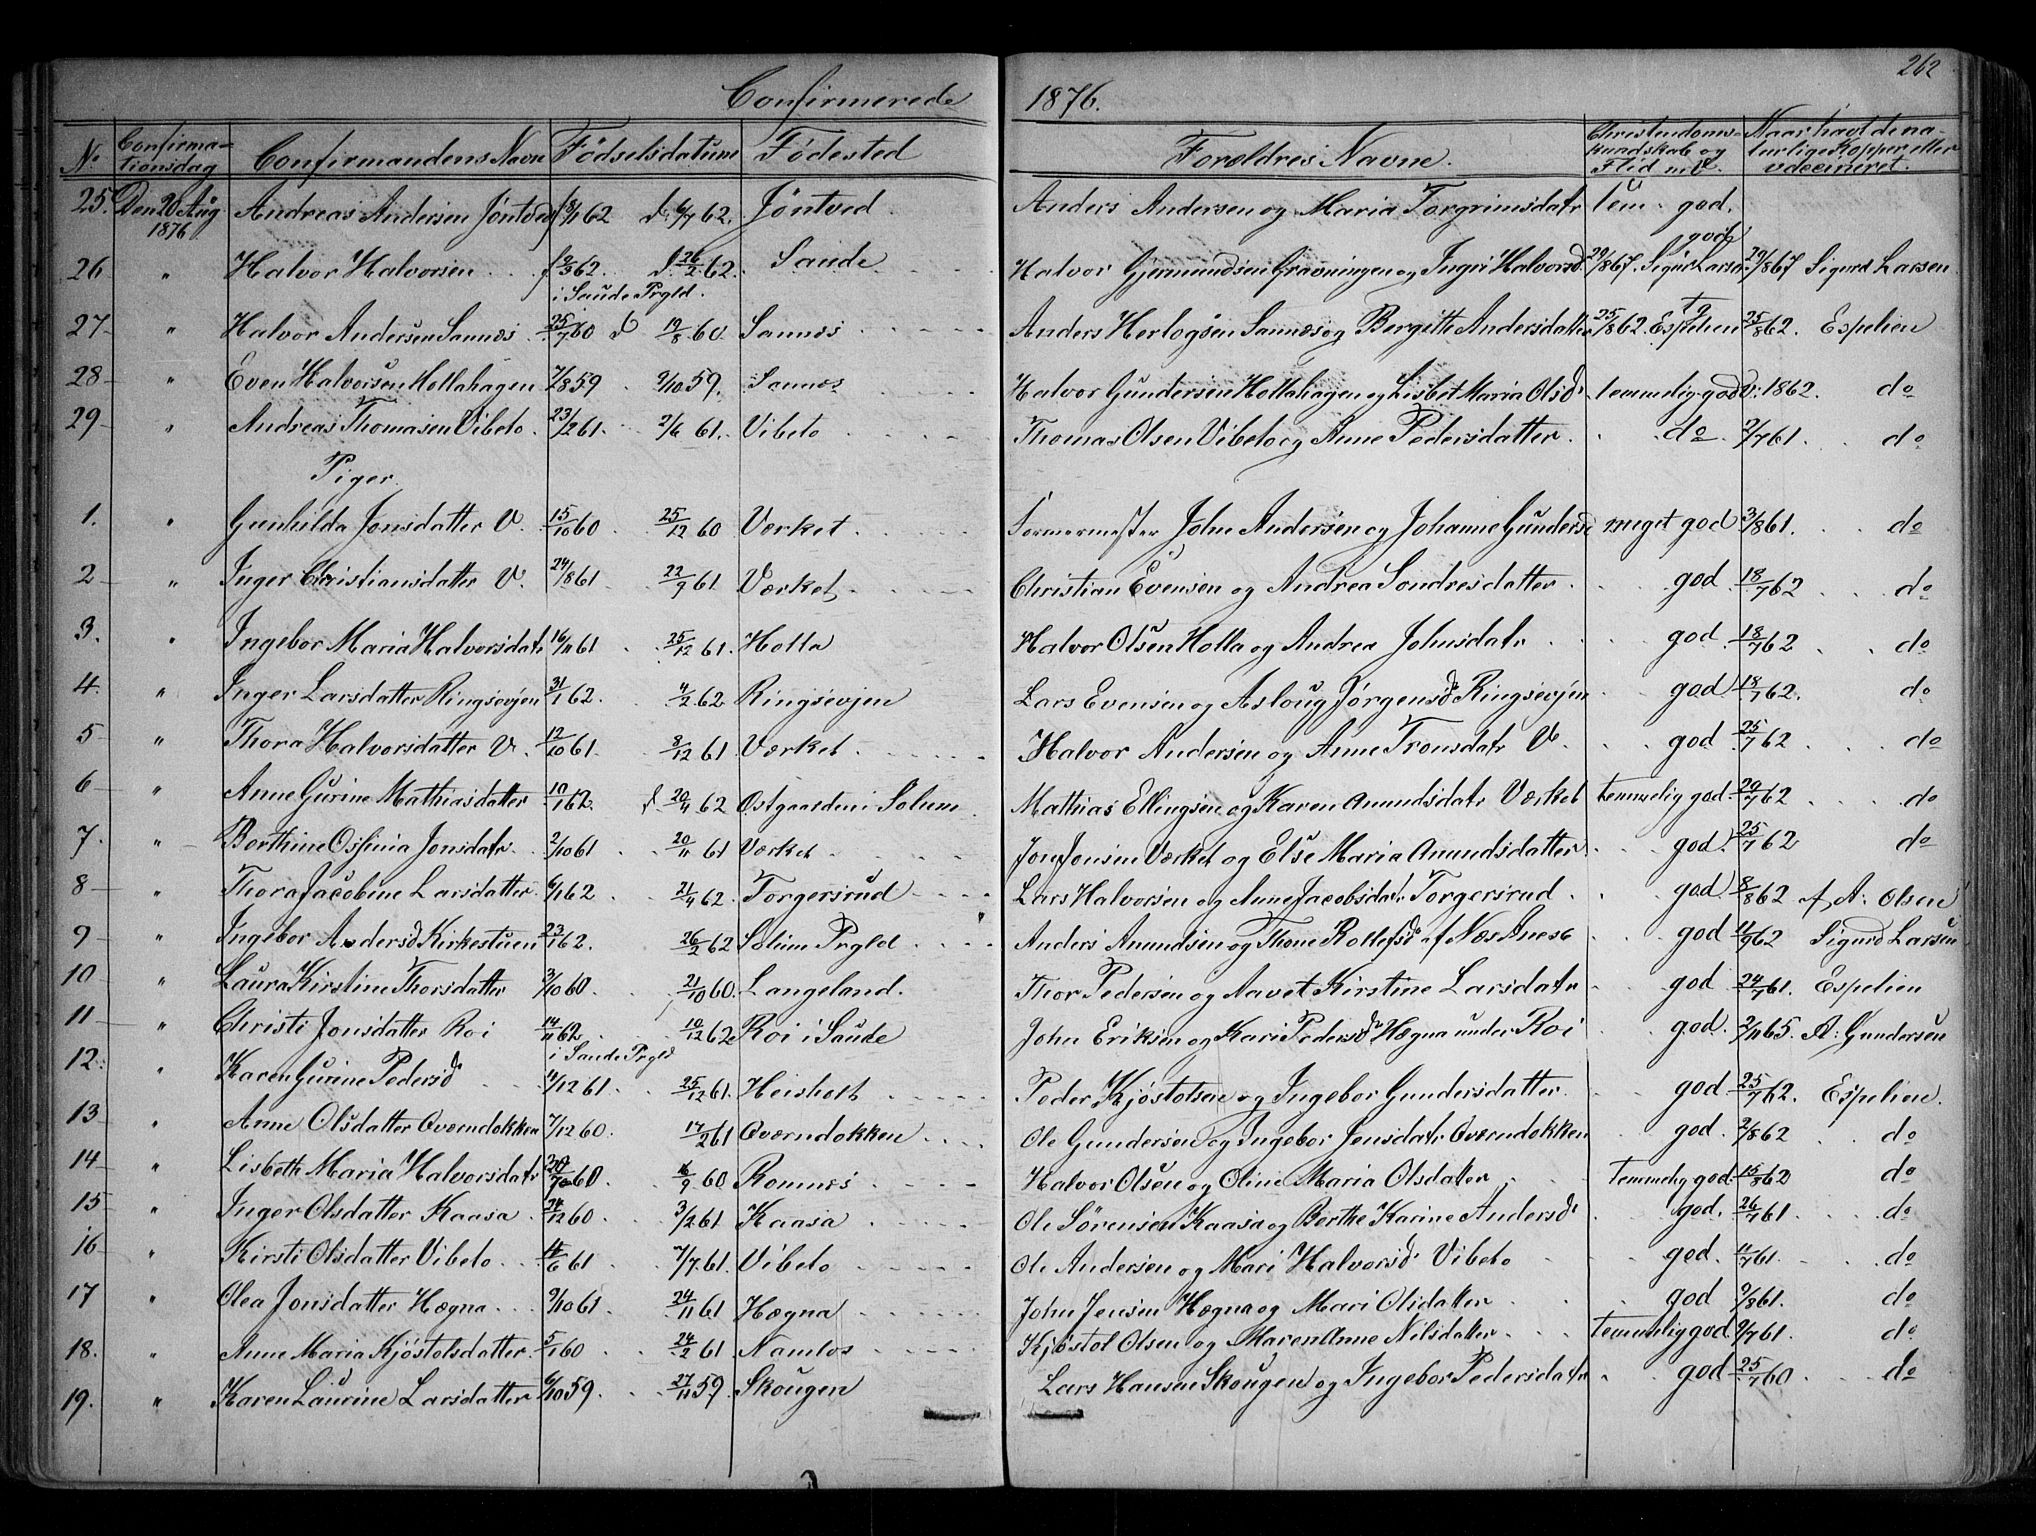 262
Confirmerede 1876.
No Confirma-tionsdag Confirmandens Navn Fødselsdatum Fødested Forældres Navne. Christendoms-kundskab og Flid m.V. Naar havt de na-turlige Kopper eller vaccineret.
25. Den 20 Aug 1876 Andreas Andersen Jøntved f 8/1 62 d. 6/7 62. Jøntved. Anders Andersen og Maria Torgrimsdatr tem. god.
26 " Halvor Halvorsen f 2/3 62. d. 26/2 62. Saude Halvor Gjermundsen Gravningen og Ingri Halvorsd. god 29/8 67. Sigur Larsen 29/8 67 Sigurd Larsen
i Saude Prgld.
27 " Halvor Andersen Sannes 25/7 60 d 19/8 60. Sannes Anders Herlogsen Sannes og Bergitte Andersdatter tg 25/8 62. Espelien 25/8 62. Espelien
28 " Even Halvorsen Hollahagen 7/8 59 9/10 59. Sannes Halvor Gundersen Hollahagen og Lisbet Maria Olsd. temmelig god V: 1862. do
29 " Andreas Thomasen Vibeto 23/2 61. 2/6 61. Vibeto Thomas Olsen Vibeto og Anne Pedersdatter do 2/7 61. do
Piger.
1. " Gunhilda Jonsdatter V. 15/10 60 25/12 60 Værket. Formermester John Andersen og Johanne Gundersd meget god 3/8 61. do
2 " Inger Christiansdatter V. 24/8 61 22/9 61 Værket Christian Evensen og Andrea Sondresdatter god 18/7 62 do
3. " Ingebor Maria Halvorsdatr 16/11 61 25/12 61. Holla Halvor Olsen Holla og Andrea Johnsdatr god 18/7 62 do
4. " Inger Larsdatter Ringsevjen 31/1 62. 4/2 62 Ringsevjen Lars Evensen og Asloug Jørgensd Ringsevjen god 18/7 62. do
5 " Thora Halvorsdatter V. 12/10 61. 8/12 61 Værket. Halvor Andersen og Anne Tronsdatr V. god 25/7 62 do
6 " Anne Gurine Mathiasdatter 10/1 62 d 20/4 62 Ostgaarden i Solum Mathias Ellingsen og Karen Amundsdatr Værket temmelig god. 29/7 62 do
7. " Berthine Osfinia Jonsdatr. 2/10 61 20/11 61 Værket Jon Jonsen Værket og Else Maria Amundsdatter god. 25/7 62 do
8 " Thora Jacobine Larsdatter 6/1 62 21/4 62. Torgersrud Lars Halvorsen og Anne Jacobsdatr Torgersrud god 8/8 62 af A. Olsen
9 " Ingebor Andersd Kirkestuen 23/1 62. 26/2 62 Solum Prgld Anders Amundsen og Thone Rollefsd af Næs god 11/9 62 Sigurd Larsen
10 " Laura Kirstine Thorsdatter 3/10 60 21/10 60. Langeland. Thor Pedersen og Navet Kirstine Larsdatr god 24/7 61. Espelien
11 " Christi Jonsdatter Roi 14/11 62 10/12 62 Roi i Saude John Eriksen og Kari Pedersd Hægna under Roi god. 2/11 65. A: Gundersen
i Saude Prgld
12. " Karen Gurine Pedersd 11/12 61 25/12 61. Heisholt Peder Kjøstolsen og Ingebor Gundersdatter god. 25/7 62. Espelien.
13 " Anne Olsdatter Overndokken 7/12 60. 17/2 61 Overndokken Ole Gundersen og Ingebor Jensdatr Overndokken god. 2/8 62 do
14 " Lisbeth Maria Halvorsdatr 60 16/9 60 Romnes Halvor Olsen og Oline Maria Olsdatter Temmelig god 15/8 62 do
15 " Inger Olsdatter Kaasa 24/12 60. 3/2 61 Kaasa Ole Sørensen Kaasa og Berthe Karine Andersd god. 26/7 61 do
16 " Kirsti Olsdatter Vibeto 61 7/7 61. Vibeto Ole Andersen og Mari Halvorsd Vibeto god. 11/7 61. do
17 " Olea Jonsdatter Hægna 9/10 61. 24/11 61 Hægna John Jensen Hægna og Mari Olsdatter god 9/8 61. do
18. " Anne Maria Kjøstolsdatter 5/1 60 24/2 61 Namlos Kjøstol Olsen og Maren Anne Nilsdatter Temmelig god 9/7 61. do
19. " Karen Laurine Larsdatter 6/10 59. 27/11 59. Skougen Lars Hansen Skougen og Ingebor Pedersdatr god 25/7 60 do